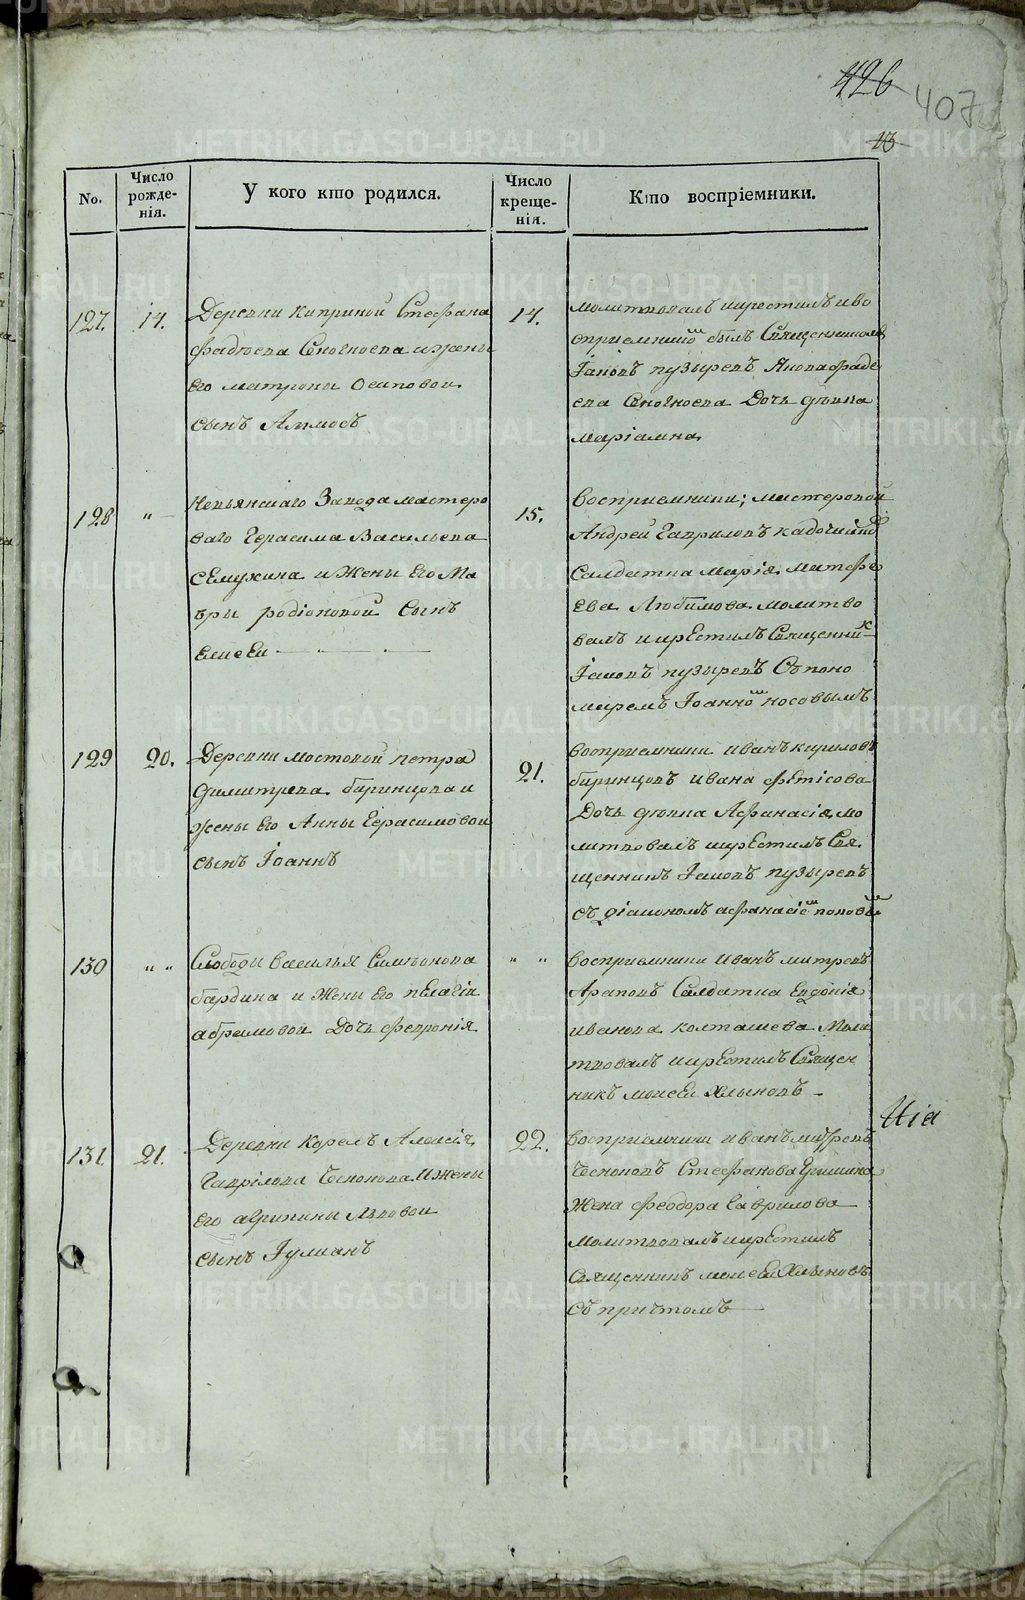 426
407
13
No.
Число рожде-нія.
У кого кто родился.
Число креще-нія.
Кто воспріемники.
127.
14.
Деревни Киприной Стефана
Фадѣева Сногноева и жены
Его матроны Осиповой
сынъ Аммосъ
14.
молитвовалъ икрестилъ иво
сприемникомъ былъ Священникъ
Іаковъ пузыревъ Якова Фаде
ева Сногноева Дочь дѣвка
Маріамна
128
"
Невьянскаго Завода мастеро
ваго Герасима Васильева
Семухина и Жены Его Ма
вры родіоновой Сынъ
Елисеи
15.
Восприемники; мастеровой
Андрей Гавриловъ кадочниковъ
Салдатка Марія Матфе
ева Любимова молитво
валъ икрЕстилъ Священникъ
Іаковъ пузыревъ Съ поно
маремъ Іоанномъ носовымъ
129
20.
Деревни мостовой петра
Димитрева бъринцова и
жены Его Анны Герасимовой
сынъ Іоаннъ
21.
Восприемники иванъ кириловъ
бъринцовъ ивана фетісова
Дочь дѣвка Афанасія, мо
литвовалъ икрЕстилъ Свя
щенникъ Іаковъ пузыревъ
съ діакономъ афанасіемъ поповымъ
130
" "
Слободы василья Симеонова
бардина и Жены Его пЕлагіи
абрамовой Дочь февронія
" "
восприемники Иванъ митревъ
Араповъ Салдатка Евдокія
иванова колташева Моли
твовалъ икрЕстилъ Священ
никъ моисеи Хлыновъ
131
21.
Деревни Корелъ Алексія
Гаврілова Чеснокова Ижены
Его агрипины Львовои
сынъ Іулианъ
22.
Восприемники иванъ митревъ
Чесноковъ Стефанова Гришина
Жена Феодора Гаврилова
молитвовалъ икрЕстилъ
Священникъ моисеи Хлыновъ
Съ причтомъ
METRIKI.GASO-URAL.RU